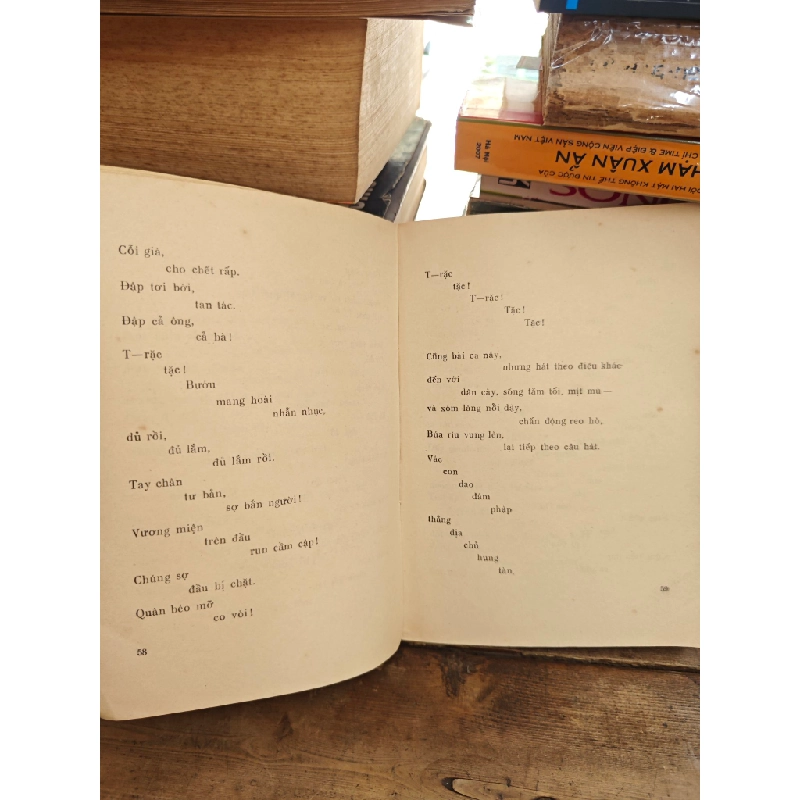 Cỗi già,
cho chết rấp,
Đập tơi bời,
tan tác.
Đập cả ông,
cả bà!
T—rặc
tặc!
Bườn
mang hoài
nhẫn nhục,
đủ rồi,
đủ lắm,
đủ lắm rồi.
Tay chân
tư bản,
sợ bắn người!
Vương miện
trên đầu
run cầm cập!
Chúng sợ
đầu bị chặt.
Quân béo mỡ
co vòi!
58
T—rặc
tặc!
T—rặc!
Tặc!
Tặc!
Cũng bài ca này,
nhưng hát theo điệu khác
đến với
dân cày, sống tăm tối, mịt mù—
và xóm làng nổi dậy,
chấn động reo hò,
Búa rìu vung lên,
lại tiếp theo câu hát.
Vác
con
dao
đâm
pháp
thằng
địa
chủ
hung
tàn.
59
PHẠM XUÂN ẨN
CHÍ TIME & ĐIỆP VIÊN CỘNG SẢN VIỆT NAM
ĐÔI HAI MẶT KHÔNG THỂ TIN ĐƯỢC CỦA